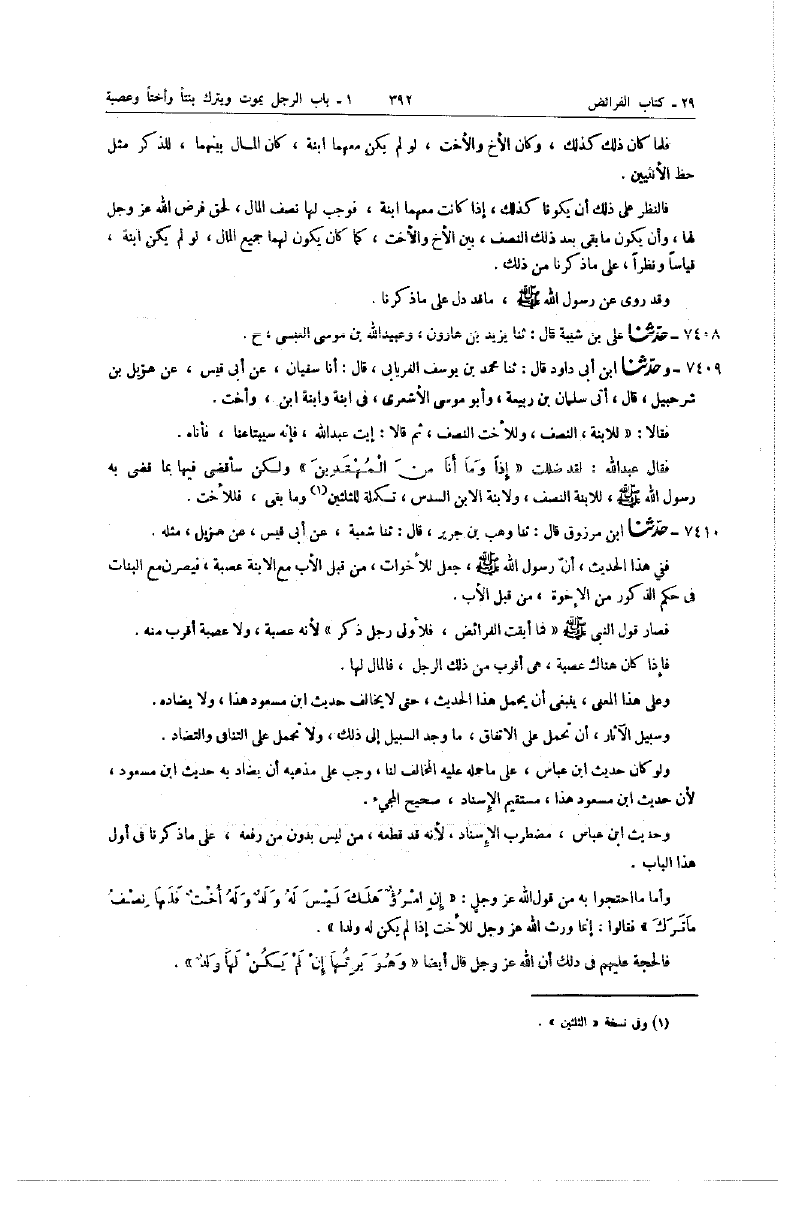 ٢٩ - كتاب الفرائض ٣٩٢ ١ - باب الرجل يموت ويترك بنتاً وأختاً وعصبة
فلما كان ذلك كذلك ، وكان الأخ والأخت ، لو لم يكن معهما ابنة ، كان المـال بينهما ، للذكر مثل
حظ الأنثيين .
فالنظر على ذلك أن يكونا كذلك ، إذا كانت معهما ابنة ، فوجب لها نصف المال ، لحق فرض الله عز وجل
لها ، وأن يكون مابقى بعد ذلك النصف ، بين الأخ والأخت ، كما كان يكون لهما جميع المال ، لو لم يكن ابنة ،
قياساً ونظراً ، على ماذكرنا من ذلك .
وقد روى عن رسول الله ﷺ ، ماقد دل على ماذكرنا .
٧٤٠٨ - حدثنا على بن شيبة قال : ثنا يزيد بن هارون ، وعبيدالله بن موسى العبسى ، ح .
٧٤٠٩ - وحدثنا ابن أبى داود قال : ثنا محمد بن يوسف الفريابى ، قال : أنا سفيان ، عن أبى قيس ، عن هزيل بن
شرحبيل ، قال ، أتى سلمان بن ربيعة ، وأبو موسى الأشعرى ، فى ابنة وابنة ابن ، وأخت .
فقالا : « للابنة ، النصف ، وللأخت النصف ، ثم قالا : إيت عبدالله ، فإنه سيتابعنا ، فأتاه .
فقال عبدالله : لقد ضللت « إِذاً وَمَا أَنَا مِنَ الْمُهْتَدِينَ » ولكن سأقضى فيها بما قضى به
رسول الله ﷺ ، للابنة النصف ، ولابنة الابن السدس ، تكملة للثلثين(١) وما بقى ، فللأخت .
٧٤١٠ - حدثنا ابن مرزوق قال : ثنا وهب بن جرير ، قال : ثنا شعبة ، عن أبى قيس ، عن هزيل ، مثله .
ففى هذا الحديث ، أنّ رسول الله ﷺ ، جعل للأخوات ، من قبل الأب مع الابنة عصبة ، فيصرن مع البنات
فى حكم الذكور من الإخوة ، من قبل الأب .
فصار قول النبى ﷺ « فما أبقت الفرائض ، فلأولى رجل ذكر » لأنه عصبة ، ولا عصبة أقرب منه .
فإذا كان هناك عصبة ، هى أقرب من ذلك الرجل ، فالمال لها .
وعلى هذا المعنى ، ينبغى أن يحمل هذا الحديث ، حتى لايخالف حديث ابن مسعود هذا ، ولا يضاده .
وسبيل الآثار ، أن تحمل على الاتفاق ، ما وجد السبيل إلى ذلك ، ولا تحمل على التنافى والتضاد .
ولو كان حديث ابن عباس ، على ماحمله عليه المخالف لنا ، وجب على مذهبه أن يضاد به حديث ابن مسعود ،
لأن حديث ابن مسعود هذا ، مستقيم الإسناد ، صحيح المجىء .
وحديث ابن عباس ، مضطرب الإسناد ، لأنه قد قطعه ، من ليس بدون من رفعه ، على ماذكرنا فى أول
هذا الباب .
وأما مااحتجوا به من قول الله عز وجل : « إِنِ امْرُؤٌ هَلَكَ لَيْسَ لَهُ وَلَدٌ وَلَهُ أُخْتٌ فَلَهَا نِصْفُ
مَاتَرَكَ » فقالوا : إنما ورث الله عز وجل للأخت إذا لم يكن له ولدا » .
فالحجة عليهم فى ذلك أن الله عز وجل قال أيضا « وَهُوَ يَرِثُهَا إِنْ لَمْ يَكُنْ لَهَا وَلَدٌ » .
(١) وفى نسخة « الثلثين » .